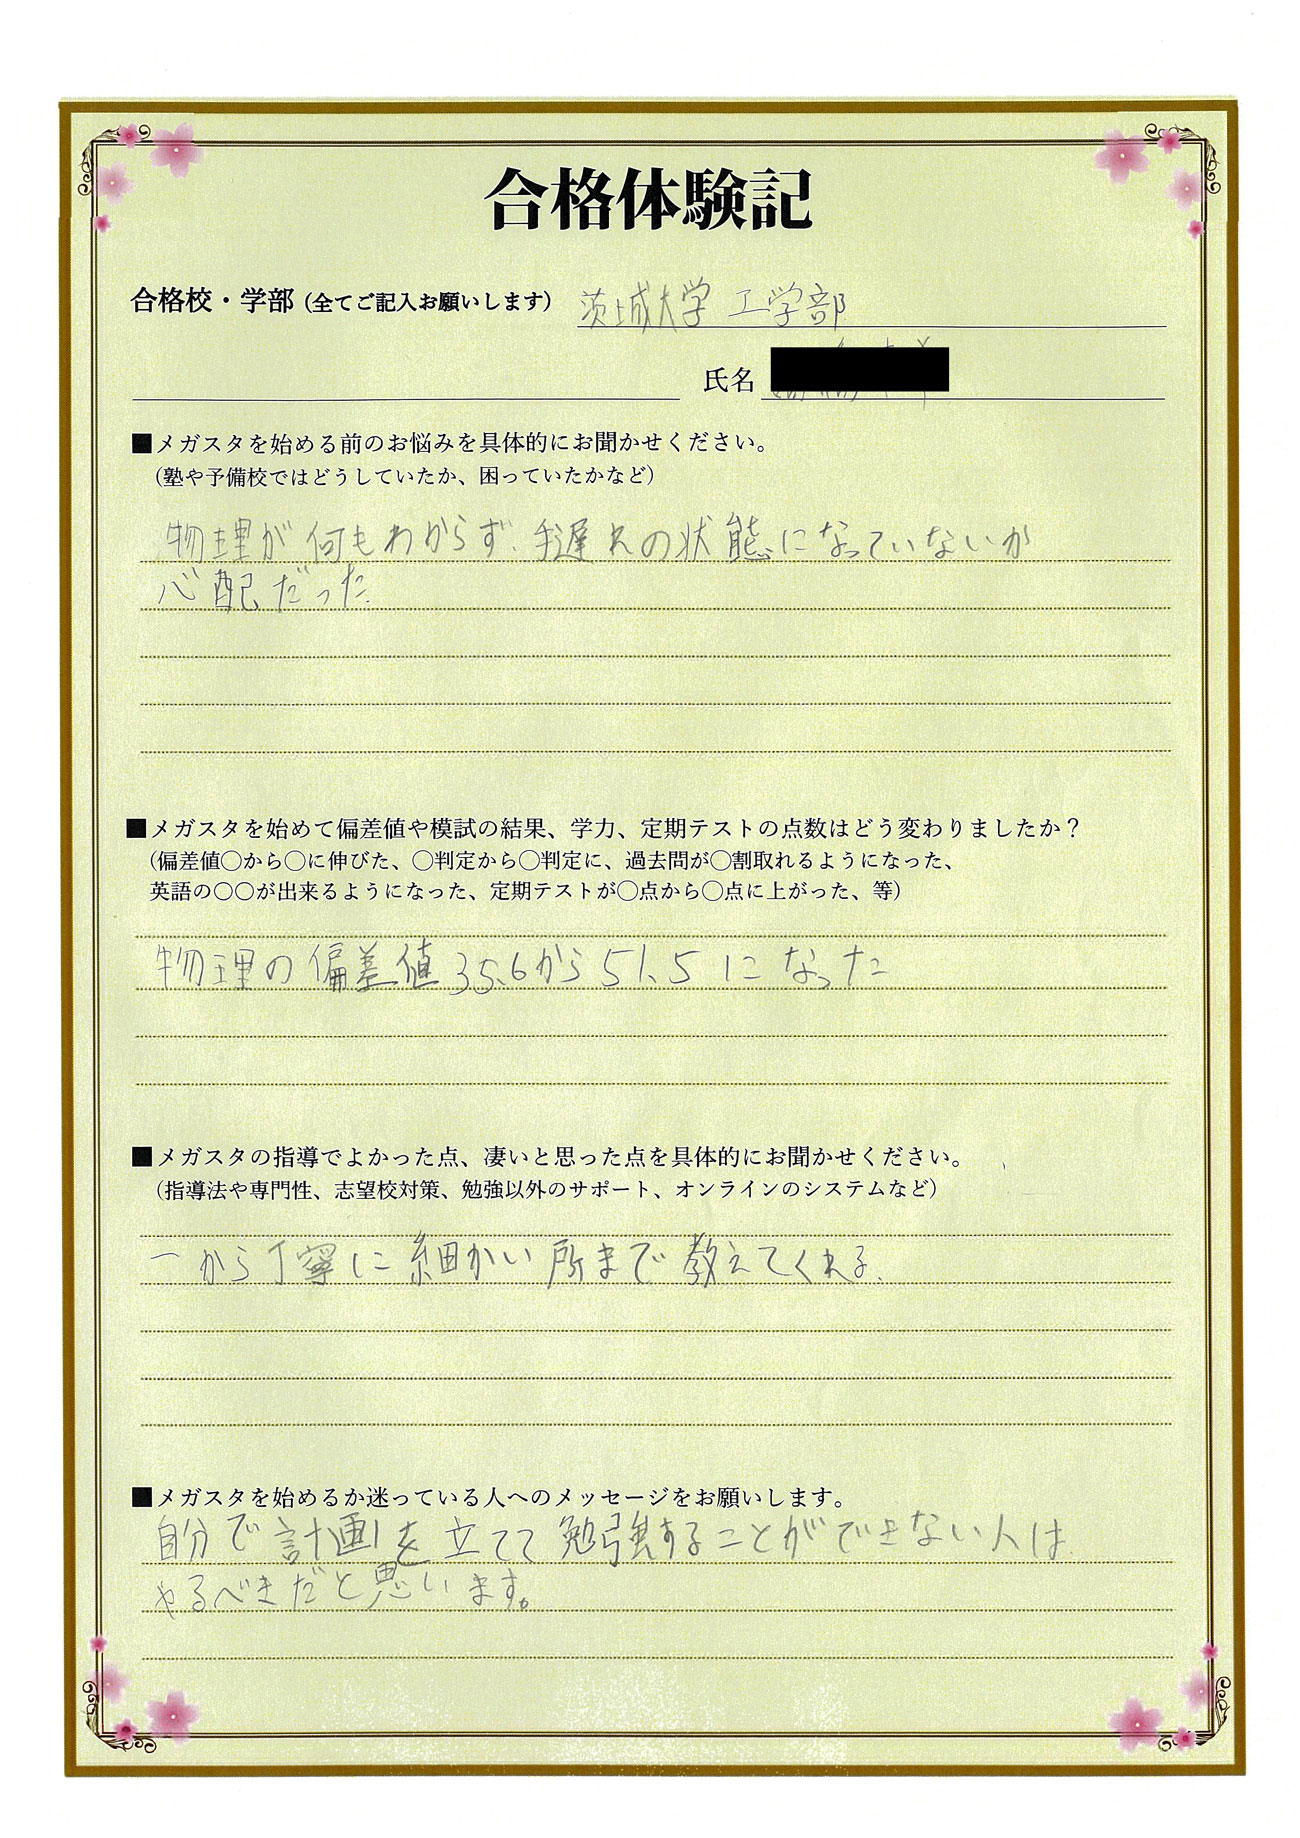 合格体験記
合格校・学部（全てご記入お願いします） 茨城大学 工学部
氏名
■メガスタを始める前のお悩みを具体的にお聞かせください。
（塾や予備校ではどうしていたか、困っていたかなど）
物理が何もわからず、手遅れの状態になっていないか
心配だった.
■メガスタを始めて偏差値や模試の結果、学力、定期テストの点数はどう変わりましたか？
（偏差値〇から〇に伸びた、〇判定から〇判定に、過去問が〇割取れるようになった、
英語の〇〇が出来るようになった、定期テストが〇点から〇点に上がった、等）
物理の偏差値35.6から51.5になった
■メガスタの指導でよかった点、凄いと思った点を具体的にお聞かせください。
（指導法や専門性、志望校対策、勉強以外のサポート、オンラインのシステムなど）
一から丁寧に細かい所まで教えてくれる.
■メガスタを始めるか迷っている人へのメッセージをお願いします。
自分で計画を立てて勉強することができない人は
やるべきだと思います。